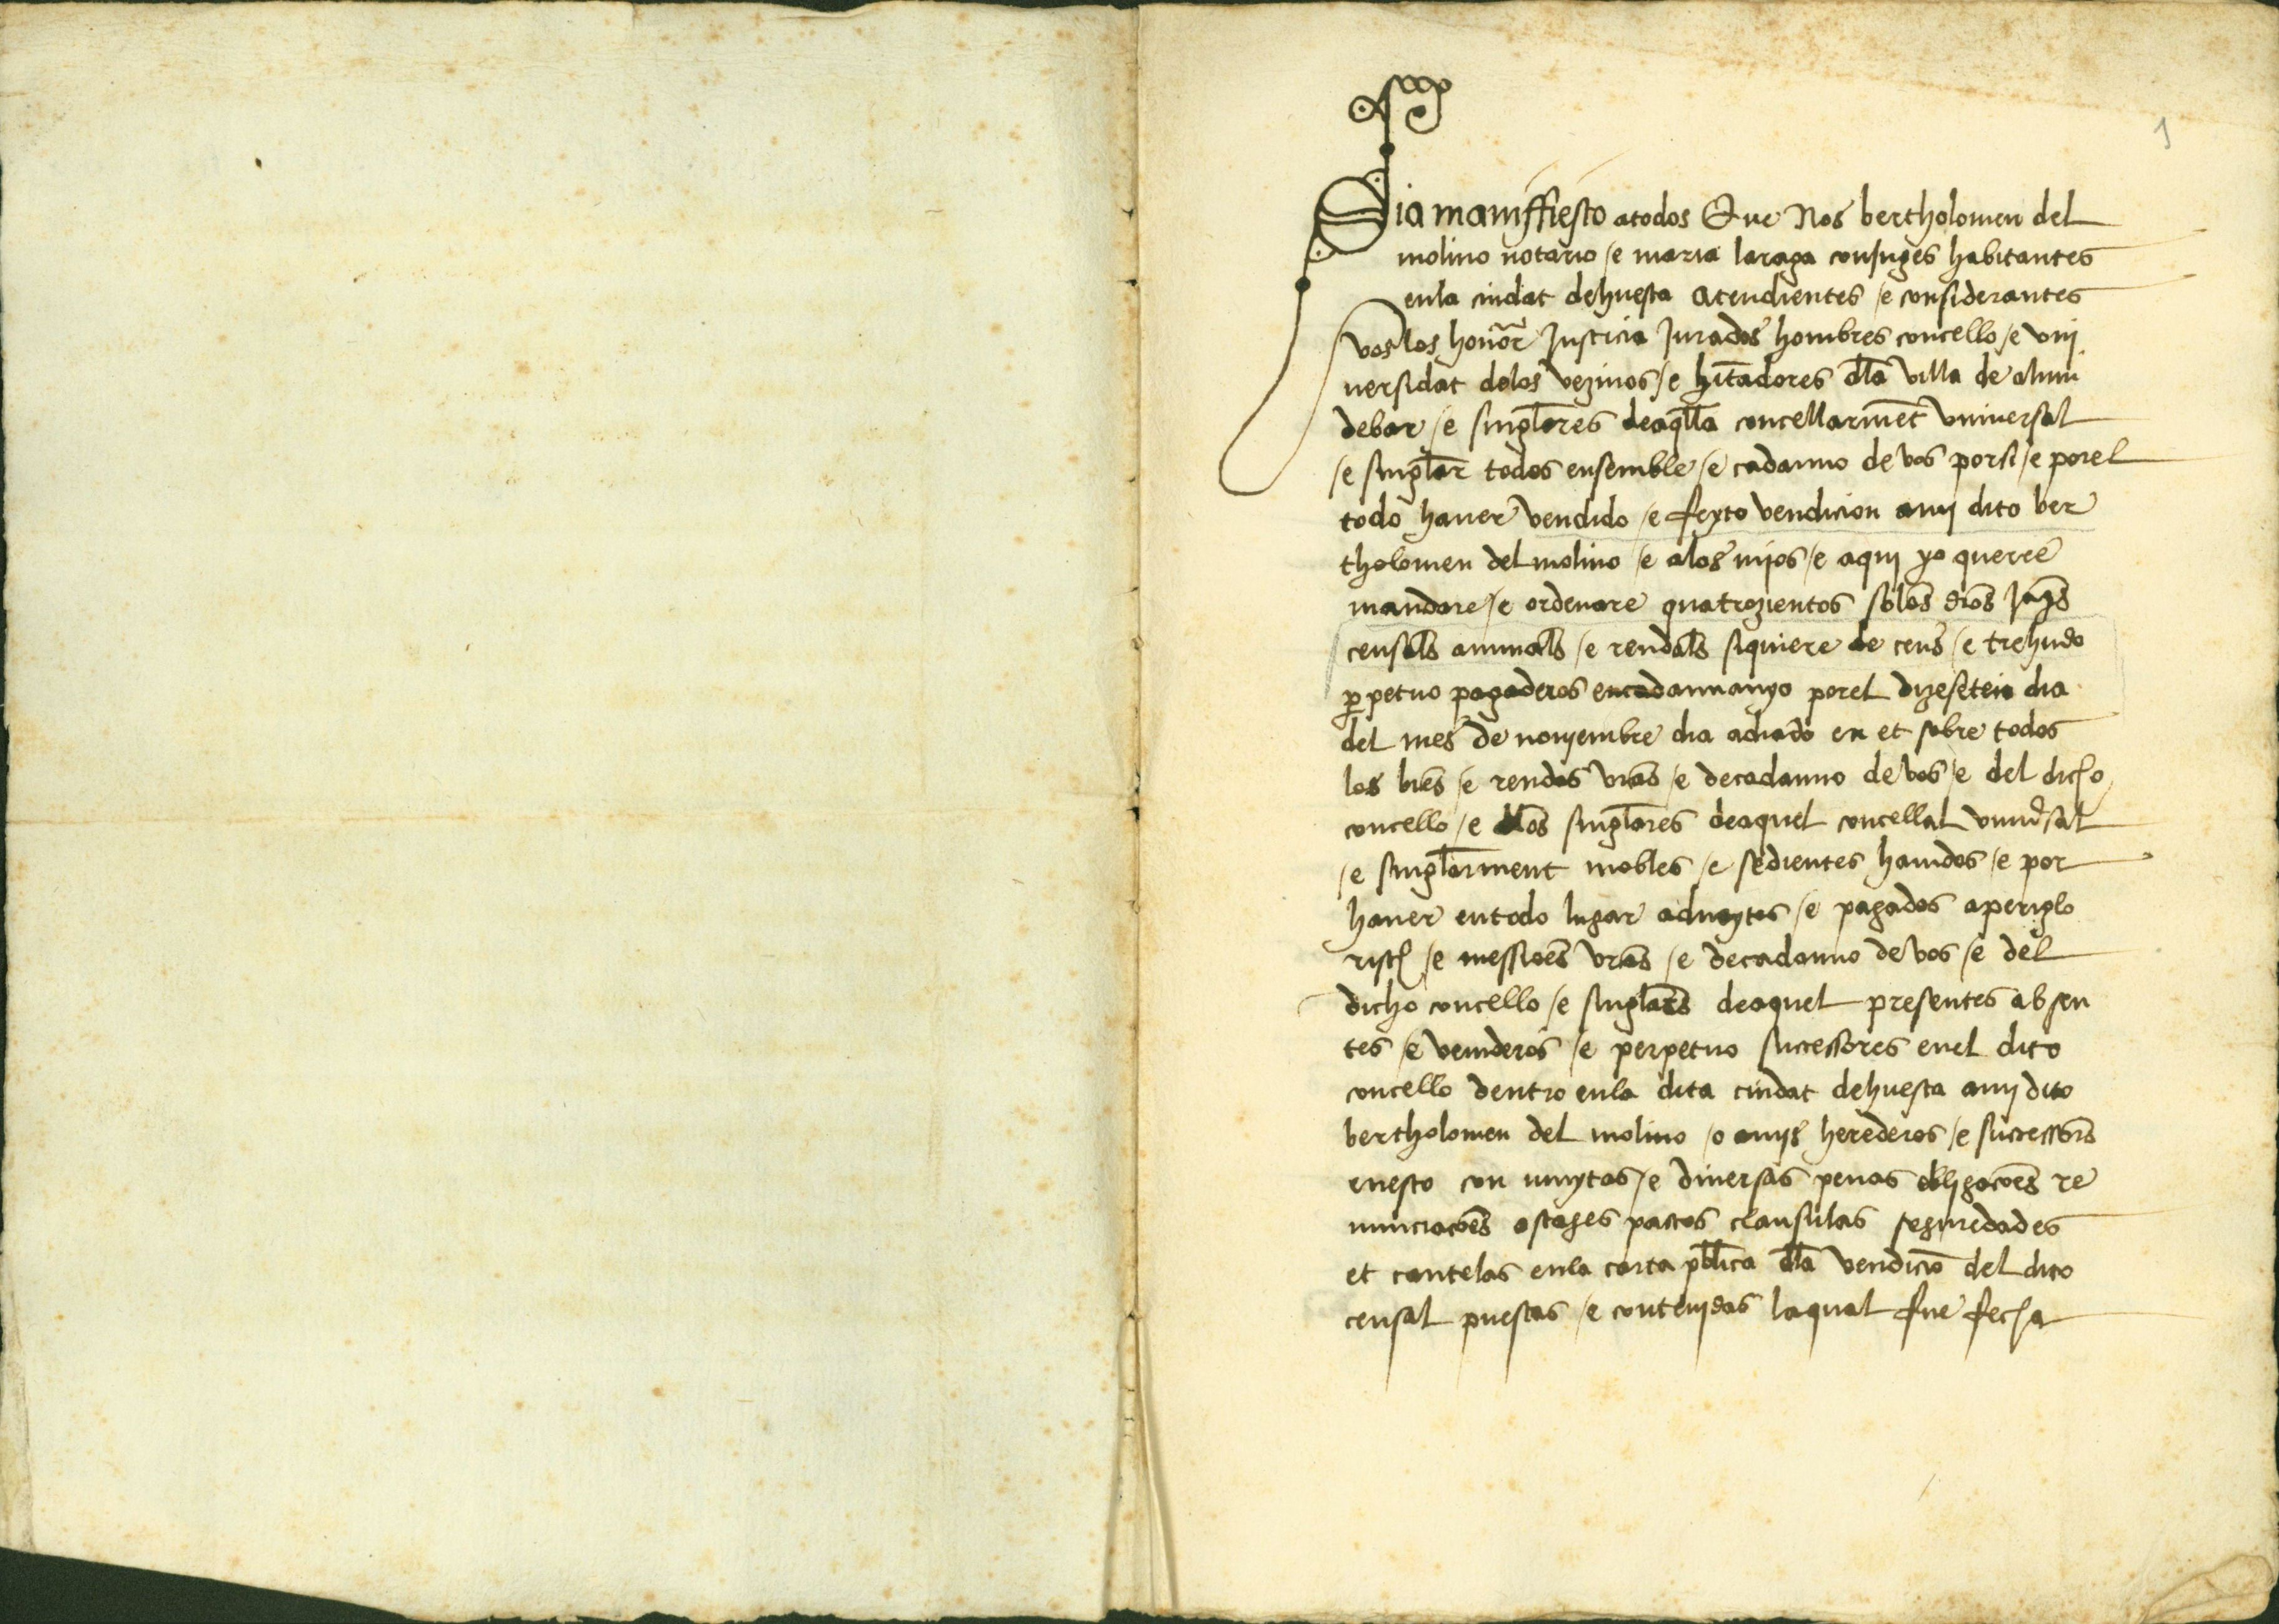 1
Sia maniffiesto atodos Que Nos bertholomeu del
molino notario e maria laraga conjuges habitantes
enla ciudat dehuesca Atendientes e considerantes
vos los honor Justicia Jurados hombres concello e vni
uersidat delos vezinos e hitadores dla villa de almu
debar e singlares deaqlla concellarment vniuersal
e singlar todos ensemble e cadauno de vos porsi e porel
todo hauer vendido e feyto vendicion amj dito ber
tholomeu del molino e alos mjos e aquj yo querre
mandare e ordenare quatrozientos solos dros Jaqs
censals annuals e rendals siquiere de cens e trehudo
perpetuo pagaderos encadaunanyo porel dizeseteno dia
del mes de nouiembre dia adiado en et sobre todos
los biens e rendas vras e decadauno de vos e del dicho
concello e dlos singlares deaquel concellal vniuersal
e singlarment mobles e sedientes hauidos e por
hauer entodo lugar aduytos e pagados aperiglo
risch e messiones vras e decadauno de vos e del
dicho concello e singlares deaquel presentes absen
tes e venideros e perpetuo successores enel dito
concello dentro enla dita ciudat dehuesca amj dito
bertholomeu del molino o amjs herederos e successors
cuesto con muytas e diuersas penas obligaciones re
nunciaciones ostages pactos clausulas seguredades
et cautelas enla carta publica dla vendicio del dito
censal puestas e contenjdas laqual fue fecha